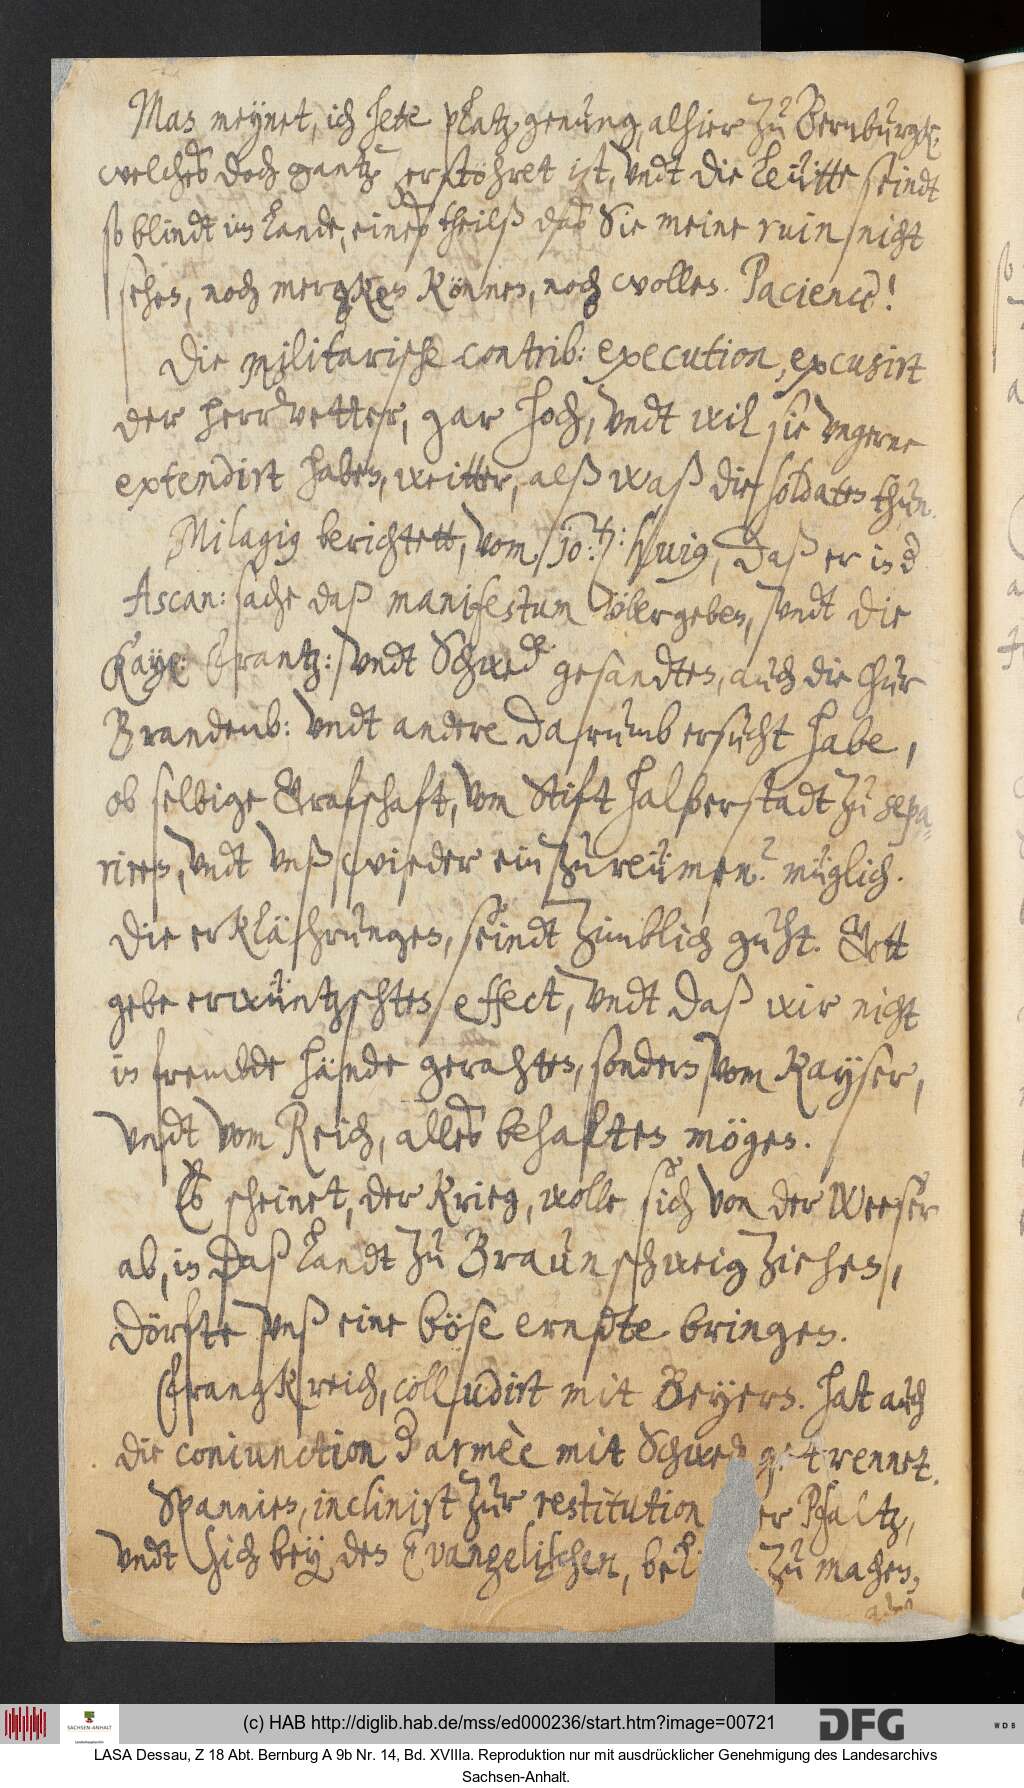 Man meynet, ich hette platz genung, alhier zu Bernburgk,
welches doch gantz zerstöhret ist, vndt die Leütte seindt
so blindt im Lande, eines theilß daß Sie meine ruin nicht
sehen, noch mergken können, noch wollen. Pacience!
Die militarische contrib: execution, excusirt
der herrvetter, gar hoch, vndt wil sie vngerne
extendirt haben, weitter, alß waß die soldaten thun.
Milagig berichtett, vom 10: daß er in d
Ascan: sache daß manifestum vbergeben, vndt die
Kay: Frantz: vndt Schwed: gesandten, auch die Chur
Brandenb: vndt andere darumb ersucht habe,
ob selbige Grafschaft, vom Stift Halberstadt zu sepa-
riren, vndt vnß wieder ein zu reümen? müglich.
Die erklährungen, seindt zimblich guht. Gott
gebe erwüntzschten effect, vndt daß wir nicht
in frembde hände gerahten, sondern vom Kayser,
vndt vom Reich, alles behaften mögen.
Es scheinet, der Krieg, wolle sich von der Weeser
ab, in daß Landt zu Braunschweig ziehen,
dörfte vnß eine böse ernßte bringen.
Frangkreich, colludirt mit Beyern. hat auch
die coniunction d'armèe mit Schweden getrennet.
Spannien, inclinirt zur restitution der Pfaltz,
vndt sich bey den Evangelischen, zu machen,
(c) HAB http://diglib.hab.de/mss/ed000236/start.htm?image=00721
SACHSEN-ANHALT
DFG
WDB
LASA Dessau, Z 18 Abt. Bernburg A 9b Nr. 14, Bd. XVIIIa. Reproduktion nur mit ausdrücklicher Genehmigung des Landesarchivs
Sachsen-Anhalt.